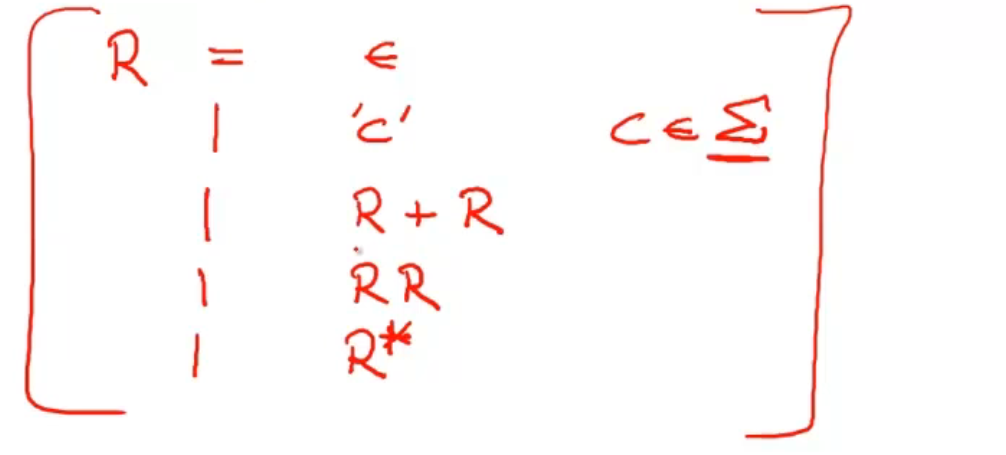 R = ϵ
| 'c' c ∈ Σ
| R + R
| R R
| R*